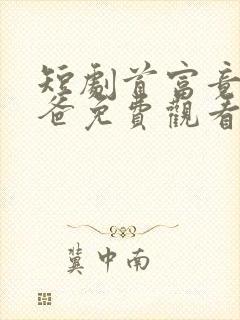 短劇首富竟
爸免費觀看
冀中南